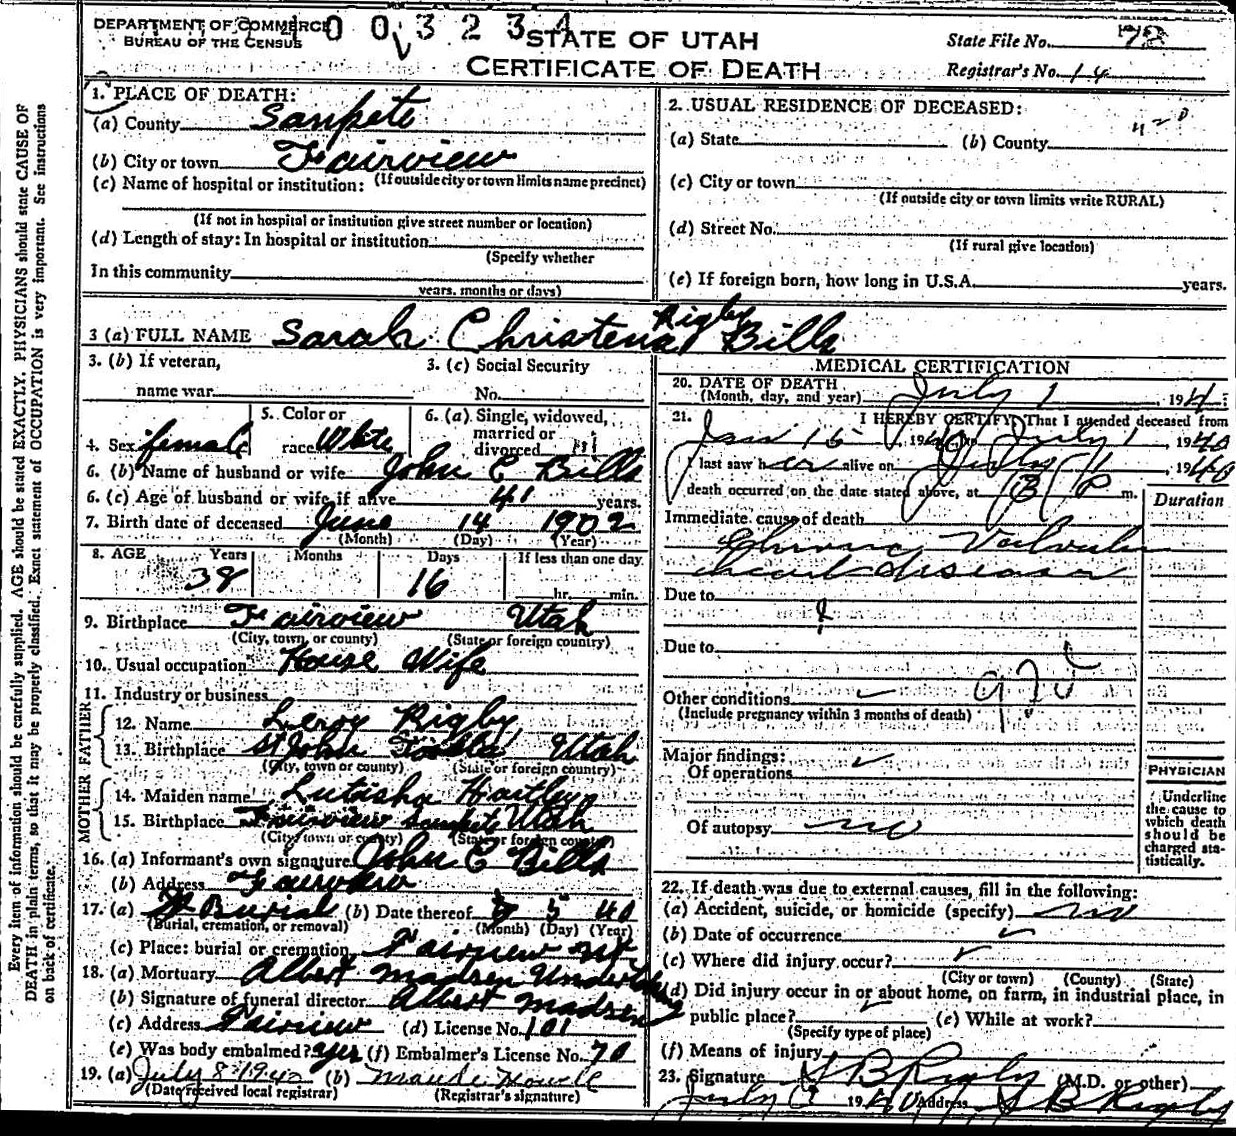 DEPARTMENT OF COMMERCE
BUREAU OF THE CENSUS
0 0 3 2 3 4
STATE OF UTAH
CERTIFICATE OF DEATH
State File No. 72
Registrar's No. 14
Every item of information should be carefully supplied. AGE should be stated EXACTLY. PHYSICIANS should state CAUSE OF
DEATH in plain terms, so that it may be properly classified. Exact statement of OCCUPATION is very important. See instructions
on back of certificate.
1. PLACE OF DEATH:
(a) County Sanpete
(b) City or town Fairview
(If outside city or town limits name precinct)
(c) Name of hospital or institution:
(If not in hospital or institution give street number or location)
(d) Length of stay: In hospital or institution
(Specify whether
In this community
years, months or days)
2. USUAL RESIDENCE OF DECEASED:
(a) State (b) County
(c) City or town
(If outside city or town limits write RURAL)
(d) Street No.
(If rural give location)
(e) If foreign born, how long in U.S.A. years.
3 (a) FULL NAME Sarah Christena Rigby Bills
3. (b) If veteran,
name war
3. (c) Social Security
No.
4. Sex female
5. Color or
race White
6. (a) Single, widowed,
married or
divorced M
6. (b) Name of husband or wife John E Bills
6. (c) Age of husband or wife if alive 41 years.
7. Birth date of deceased June 14 1902
(Month) (Day) (Year)
8. AGE Years Months Days If less than one day
38 16 hr. min.
9. Birthplace Fairview Utah
(City, town, or county) (State or foreign country)
10. Usual occupation House Wife
11. Industry or business
FATHER
12. Name Leroy Rigby
13. Birthplace St John Tooele Utah
(City, town or county) (State or foreign country)
MOTHER
14. Maiden name Lutisha Hartley
15. Birthplace Fairview Sanpete Utah
(City, town or county) (State or foreign country)
16. (a) Informant's own signature John E Bills
(b) Address Fairview
17. (a) Burial (b) Date thereof 5 40
(Burial, cremation, or removal) (Month) (Day) (Year)
(c) Place: burial or cremation Fairview Ut.
18. (a) Mortuary Albert Madsen Undertaking
(b) Signature of funeral director Albert Madsen
(c) Address Fairview (d) License No. 101
(e) Was body embalmed? yes (f) Embalmer's License No. 70
19. (a) July 8 1940 (b) Maude Howell
(Date received local registrar) (Registrar's signature)
MEDICAL CERTIFICATION
20. DATE OF DEATH
(Month, day, and year) July 1, 194
21. I HEREBY CERTIFY, That I attended deceased from
Jan 15, 1940, to July 1 1940
I last saw her alive on July 1, 1940
death occurred on the date stated above, at 8 P m.
Duration
Immediate cause of death
Chronic Valvular
heart disease
Due to
Due to
Other conditions
(Include pregnancy within 3 months of death)
Major findings:
Of operations
Of autopsy no
PHYSICIAN
Underline
the cause to
which death
should be
charged sta-
tistically.
22. If death was due to external causes, fill in the following:
(a) Accident, suicide, or homicide (specify) no
(b) Date of occurrence
(c) Where did injury occur?
(City or town) (County) (State)
(d) Did injury occur in or about home, on farm, in industrial place, in
public place? (e) While at work?
(Specify type of place)
(f) Means of injury
23. Signature S B Rigby (M.D. or other)
July 1940 Address S B Rigby